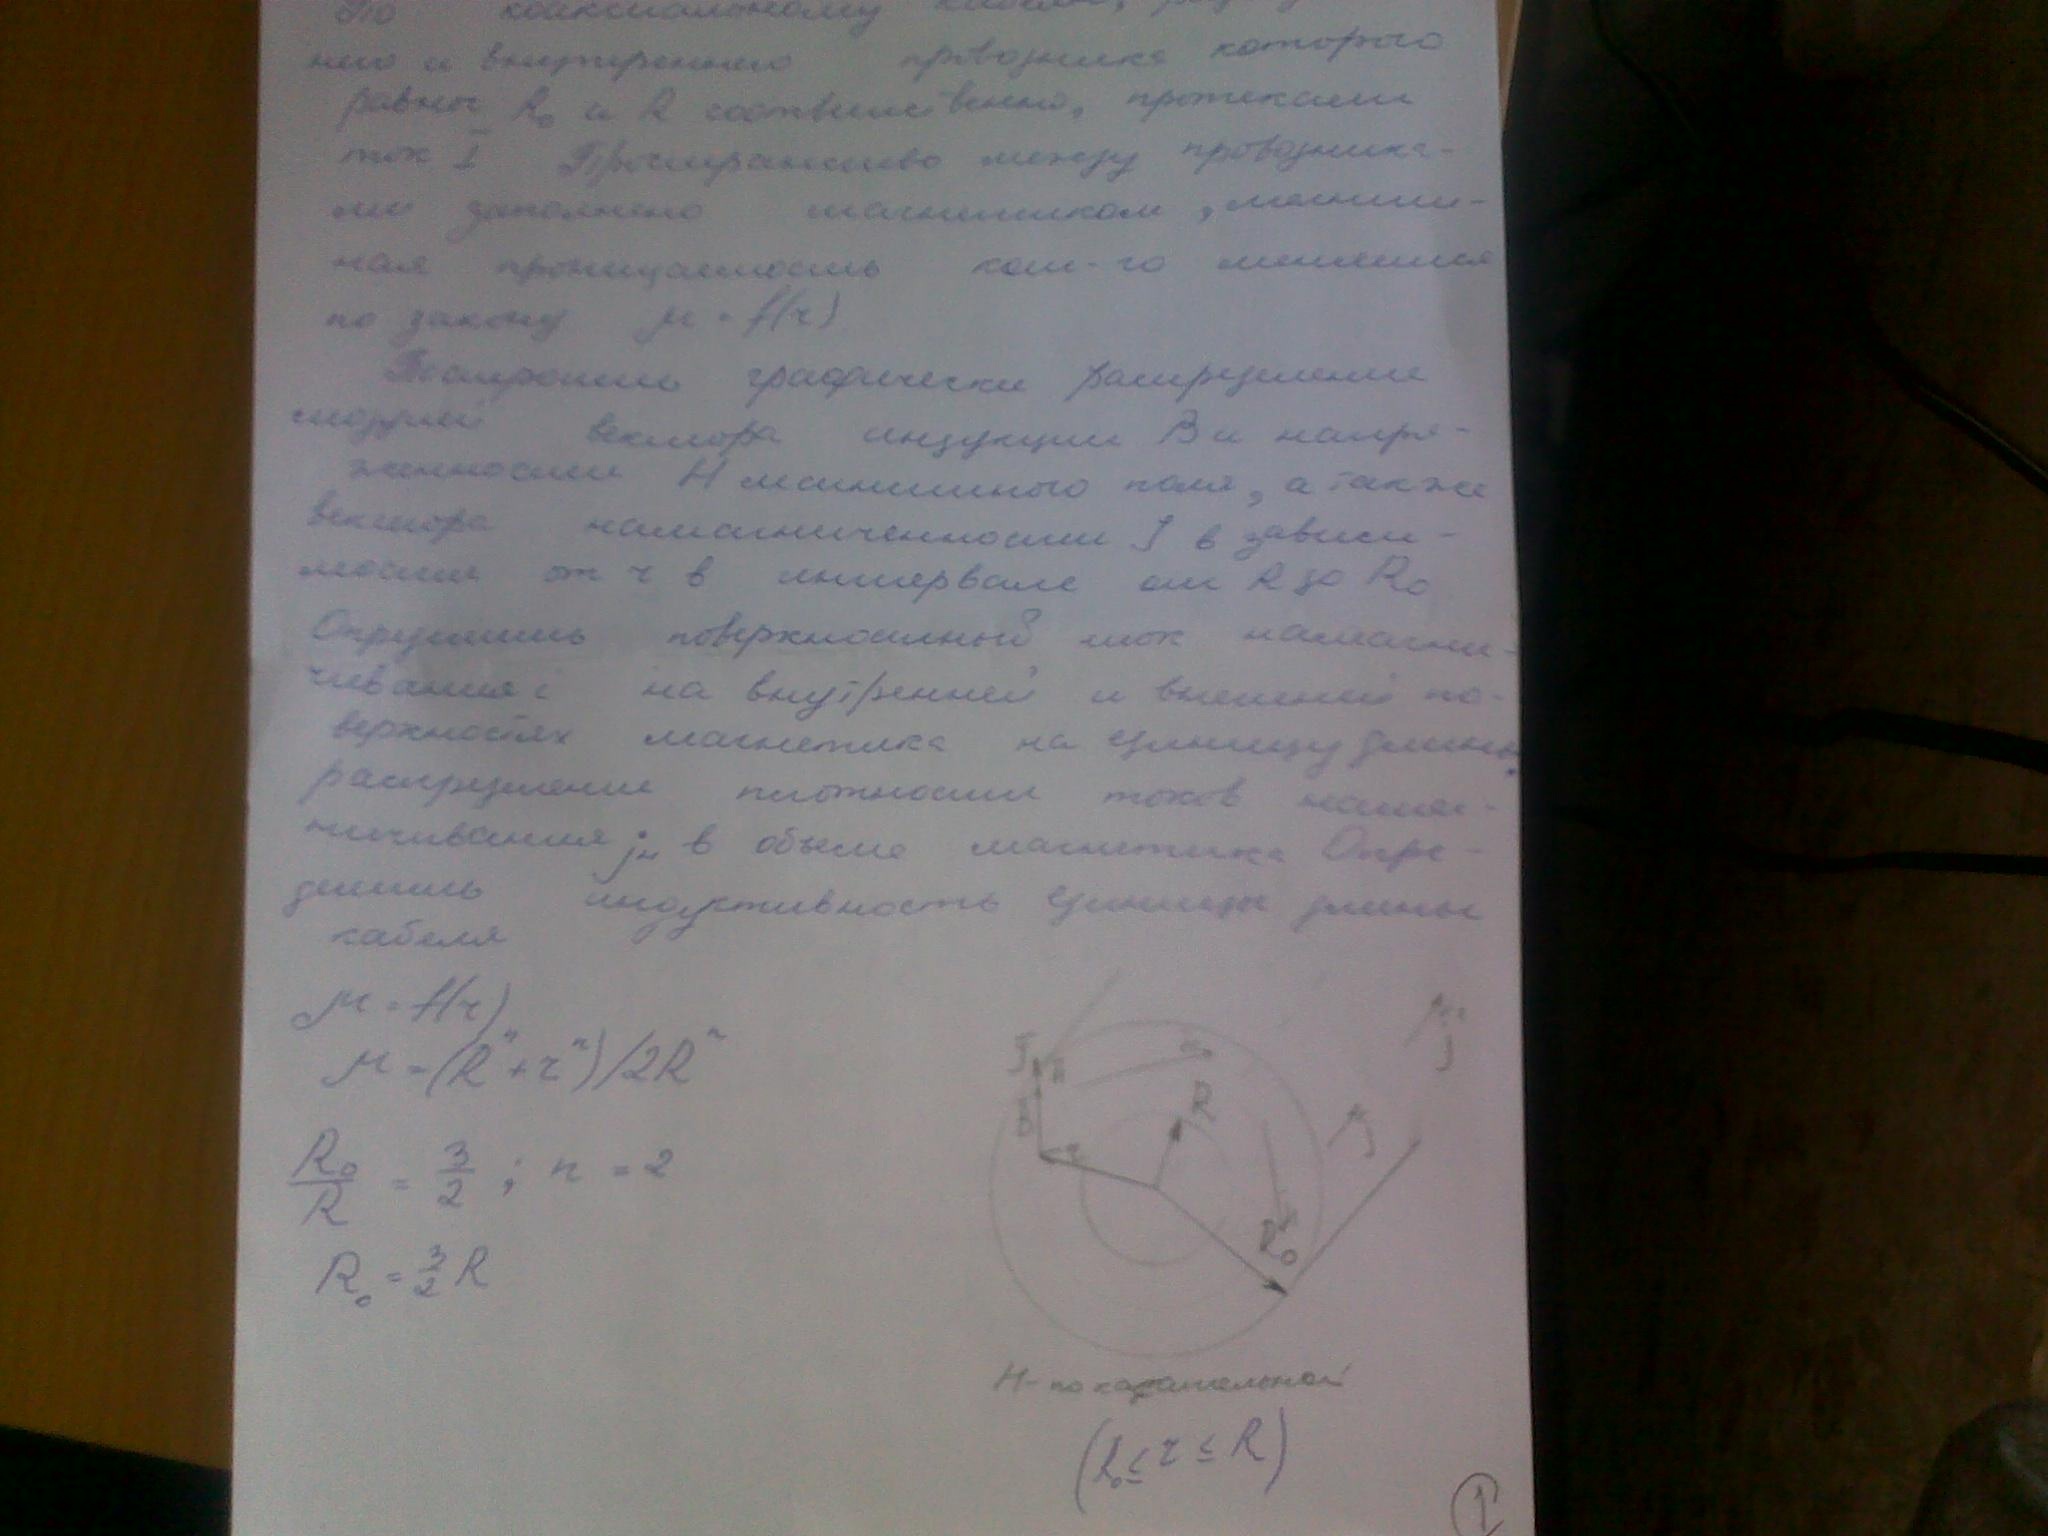 По коаксиальному кабелю,
него и внутреннего проводника которого
равны R₀ и R соответственно, протекает
ток I Пространство между проводника-
ми заполнено магнетиком, магнит-
ная проницаемость кот-го меняется
по закону μ = f(r)
Построить графически распределение
модулей вектора индукции B и напря-
женности H магнитного поля, а также
вектора намагниченности J в зависи-
мости от r в интервале от R до R₀
Определить поверхностный ток намагни-
чивания i на внутренней и внешней по-
верхностях магнетика на единицу длины,
распределение плотности токов намаг-
ничивания jн в объеме магнетика Опре-
делить индуктивность единицы длины
кабеля
μ = f(r)
μ = (Rⁿ + rⁿ)/2Rⁿ
R₀/R = 3/2 ; n = 2
R₀ = 3/2 R
J
H
B
r
R
R₀
H - по касательной
(R₀ ≤ r ≤ R)
1